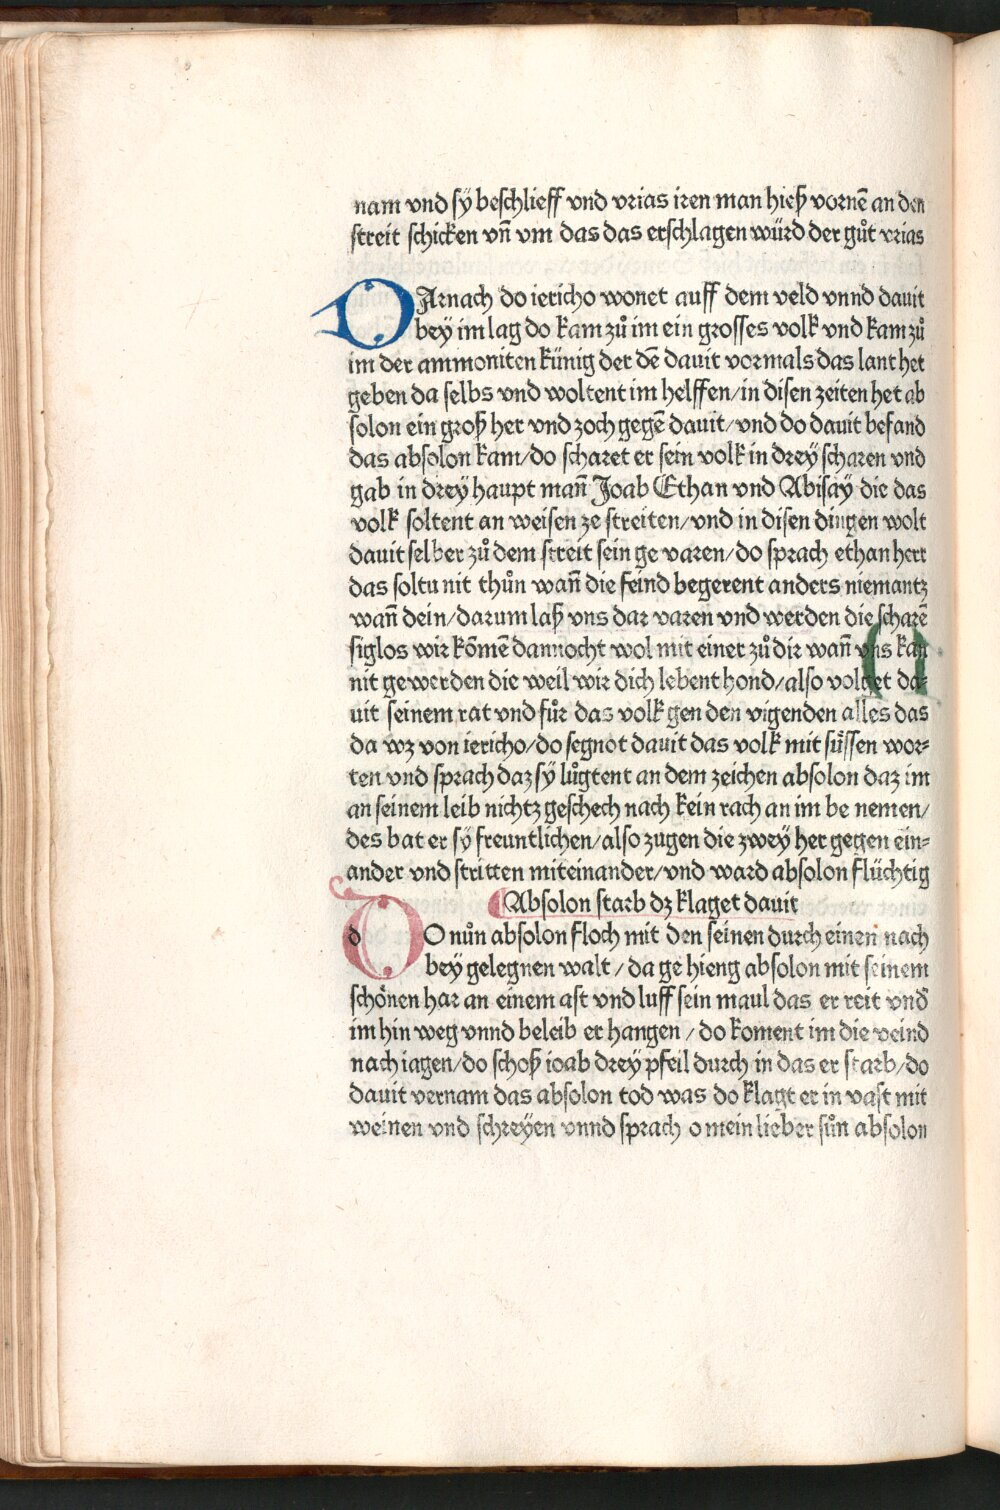 nam vnd sÿ beschlieff vnd vrias iren man hieß vornē an den
streit schicken vn̄ vm das das erschlagen würd der gůt vrias
DArnach do iericho wonet auff dem veld vnnd dauit
bey im lag do kam zů im ein grosses volk vnd kam zů
im der ammoniten künig der dē dauit vormals das lant het
geben da selbs vnd woltent im helffen/in disen zeiten het ab
solon ein groß her vnd zoch gegē dauit/vnd do dauit befand
das absolon kam/do scharet er sein volk in drey scharen vnd
gab in drey haupt man̄ Joab Ethan vnd Abisaÿ die das
volk soltent an weisen ze streiten/vnd in disen dingen wolt
dauit selber zů dem streit sein ge varen/do sprach ethan herr
das soltu nit thůn wan̄ die feind begerent anders niemantz
wan̄ dein/darum laß vns dar varen vnd werden die scharē
siglos wir kōmē dannocht wol mit einer zů dir wan̄ vns kan
nit gewerden die weil wir dich lebent hond/also volget da⸗
uit seinem rat vnd fůr das volk gen den vigenden alles das
da wz von iericho/do segnot dauit das volk mit süssen wor⸗
ten vnd sprach daz sÿ lůgtent an dem zeichen absolon daz im
an seinem leib nichtz geschech nach kein rach an im be nemen/
des bat er sÿ freuntlichen/also zugen die zwey her gegen ein⸗
ander vnd stritten miteinander/vnd ward absolon flüchtig
Absolon starb dz klaget dauit
DO nůn absolon floch mit den seinen durch einen nach
bey gelegnen walt/da ge hieng absolon mit seinem
schönen har an einem ast vnd luff sein maul das er reit vnd̄
im hin weg vnnd beleib er hangen/do koment im die veind
nach iagen/do schoß ioab drey pfeil durch in das er starb/do
dauit vernam das absolon tod was do klagt er in vast mit
weinen vnd schreyen vnnd sprach o mein lieber sůn absolon